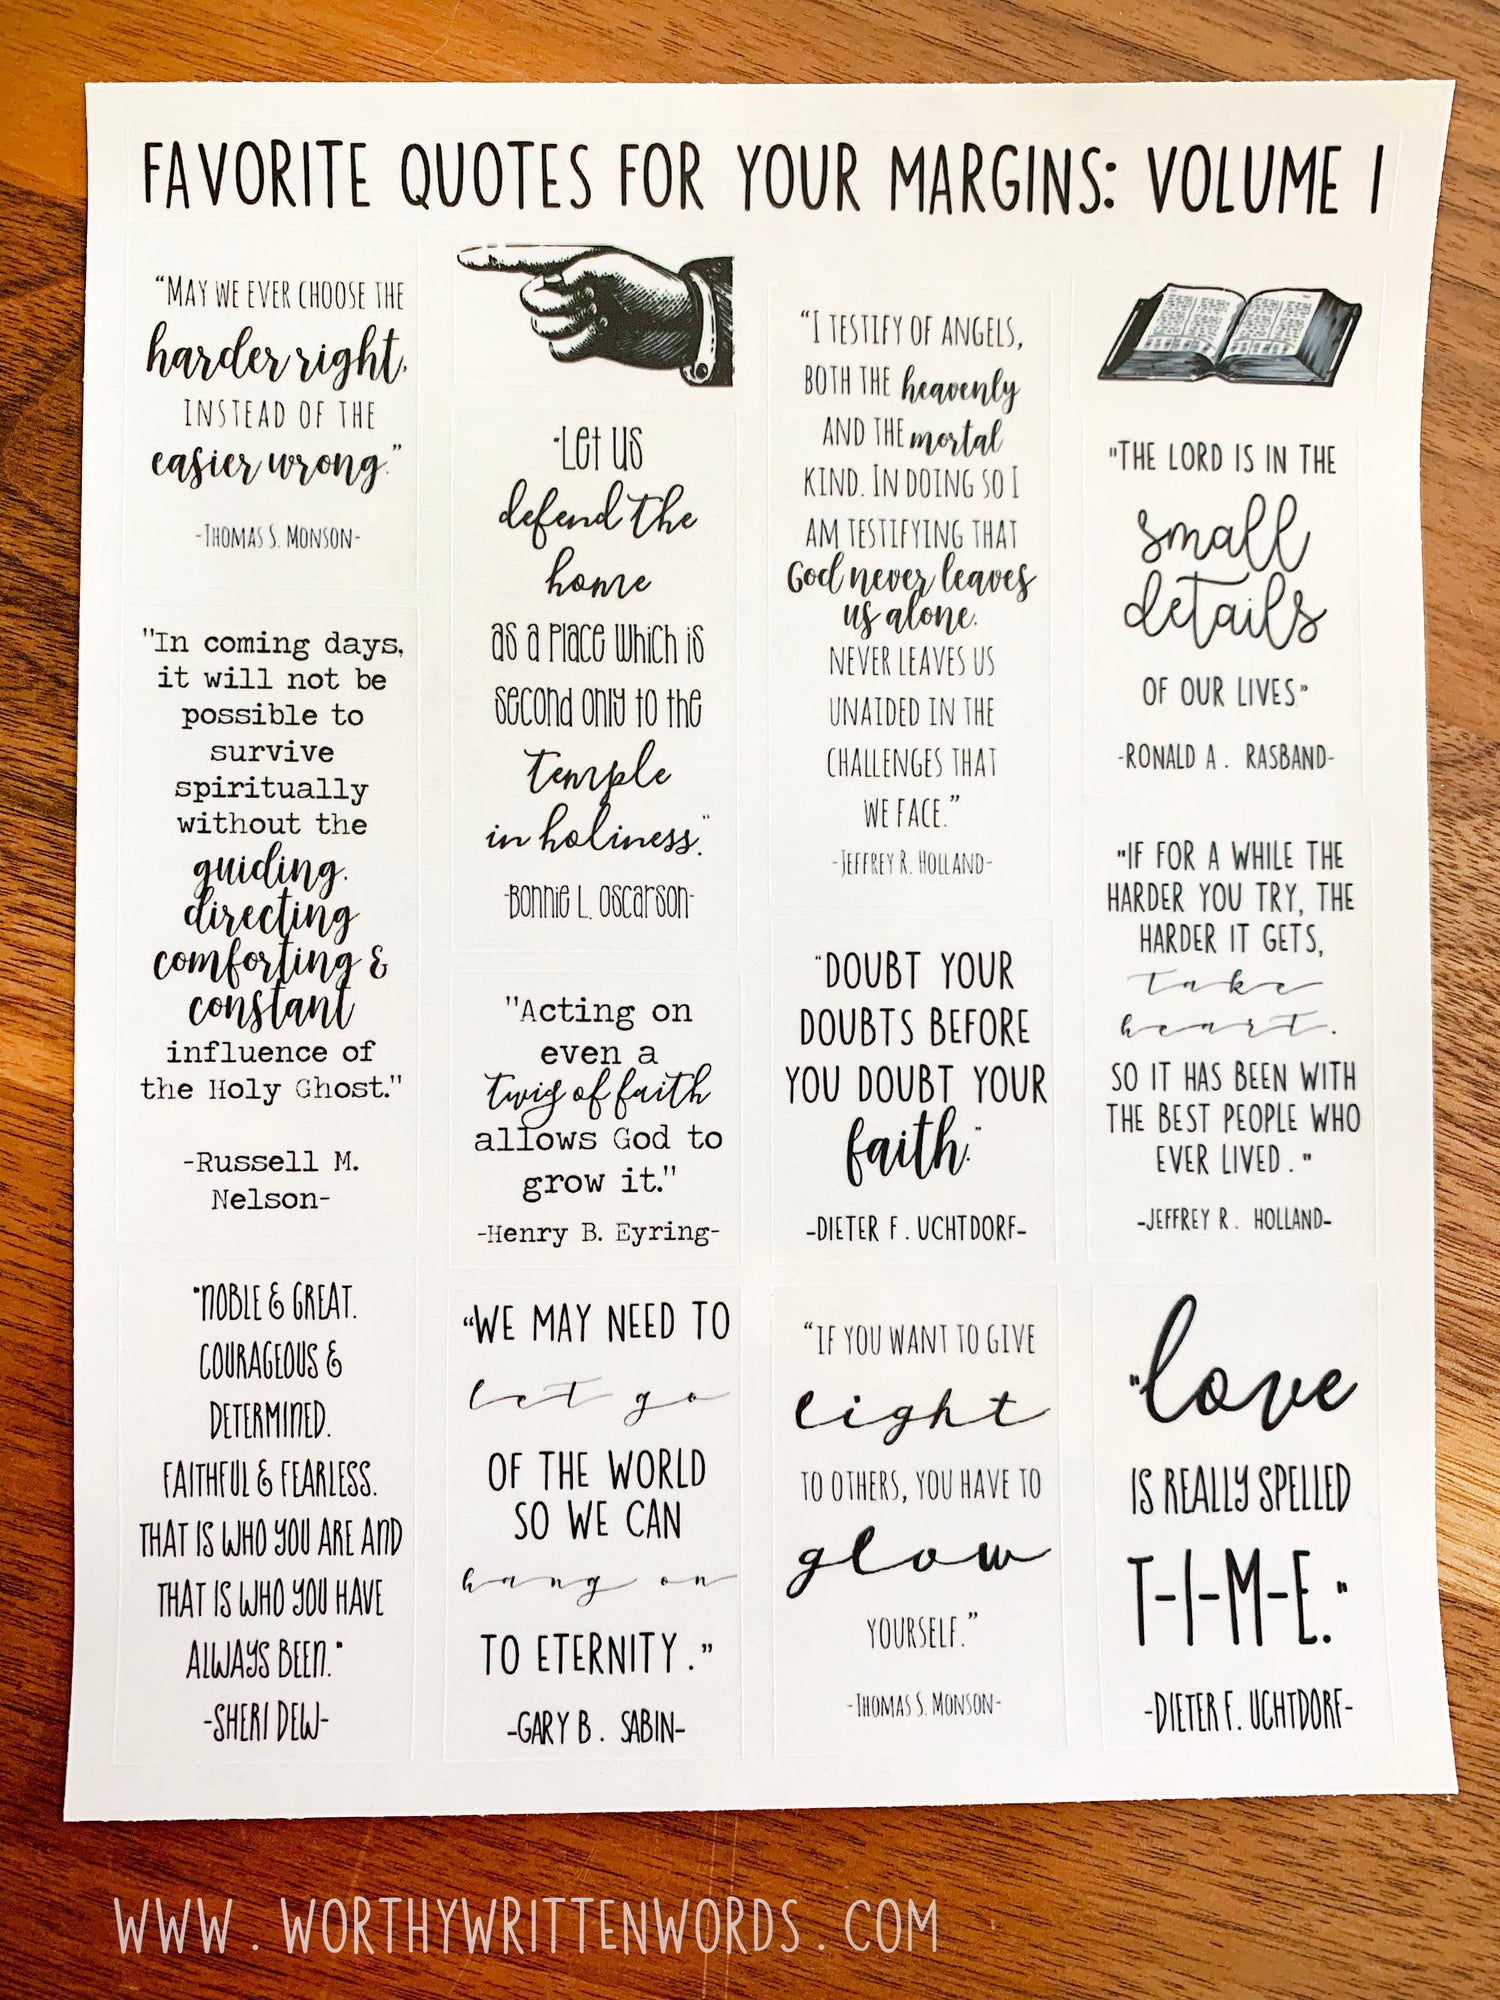 FAVORITE QUOTES FOR YOUR MARGINS: VOLUME 1
"MAY WE EVER CHOOSE THE
harder right,
INSTEAD OF THE
easier wrong."
-THOMAS S. MONSON-
"In coming days,
it will not be
possible to
survive
spiritually
without the
guiding,
directing
comforting &
constant
influence of
the Holy Ghost."
-Russell M.
Nelson-
"NOBLE & GREAT.
COURAGEOUS &
DETERMINED.
FAITHFUL & FEARLESS.
THAT IS WHO YOU ARE AND
THAT IS WHO YOU HAVE
ALWAYS BEEN."
-SHERI DEW-
"Let us
defend the
home
as a place which is
second only to the
temple
in holiness."
-Bonnie L. Oscarson-
"Acting on
even a
twig of faith
allows God to
grow it."
-Henry B. Eyring-
"WE MAY NEED TO
let go
OF THE WORLD
SO WE CAN
hang on
TO ETERNITY."
-GARY B. SABIN-
"I TESTIFY OF ANGELS,
BOTH THE heavenly
AND THE mortal
KIND. IN DOING SO I
AM TESTIFYING THAT
God never leaves
us alone.
NEVER LEAVES US
UNAIDED IN THE
CHALLENGES THAT
WE FACE."
-JEFFREY R. HOLLAND-
"DOUBT YOUR
DOUBTS BEFORE
YOU DOUBT YOUR
faith."
-DIETER F. UCHTDORF-
"IF YOU WANT TO GIVE
light
TO OTHERS, YOU HAVE TO
glow
YOURSELF."
-THOMAS S. MONSON-
"THE LORD IS IN THE
small
details
OF OUR LIVES"
-RONALD A. RASBAND-
"IF FOR A WHILE THE
HARDER YOU TRY, THE
HARDER IT GETS,
take
heart.
SO IT HAS BEEN WITH
THE BEST PEOPLE WHO
EVER LIVED."
-JEFFREY R. HOLLAND-
"love
IS REALLY SPELLED
T-I-M-E."
-DIETER F. UCHTDORF-
WWW.WORTHYWRITTENWORDS.COM